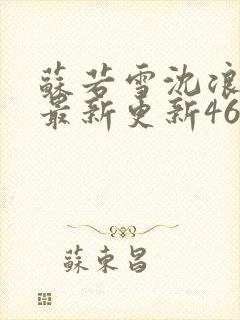 蘇若雪沈浪
最新更新46
蘇東昌